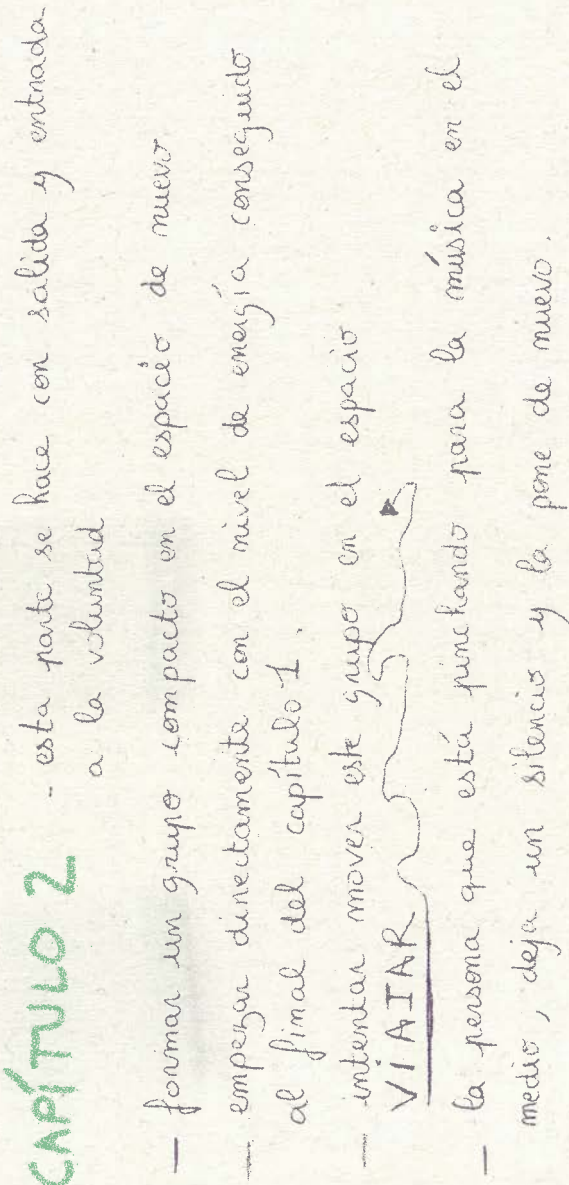 CAPÍTULO 2 - esta parte se hace con salida y entrada
a la voluntad
- formar un grupo compacto en el espacio de nuevo
- empezar directamente con el nivel de energía conseguido
al final del capítulo 1.
- intentar mover este grupo en el espacio
VIAJAR
- la persona que está pinchando para la música en el
medio, deja un silencio y la pone de nuevo.